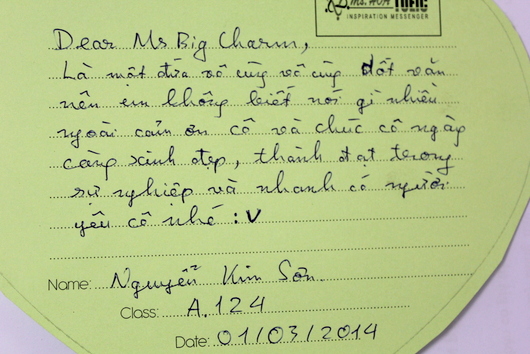 Ms. HOA TOEIC
INSPIRATION MESSENGER
Dear Ms Big Charm,
Là một đứa vô cùng vô cùng dốt văn
nên em không biết nói gì nhiều
ngoài cảm ơn cô và chúc cô ngày
càng xinh đẹp, thành đạt trong
sự nghiệp và nhanh có người
yêu cô nhé :v
Name: Nguyễn Kim Sơn
Class: A.124
Date: 01/03/2014